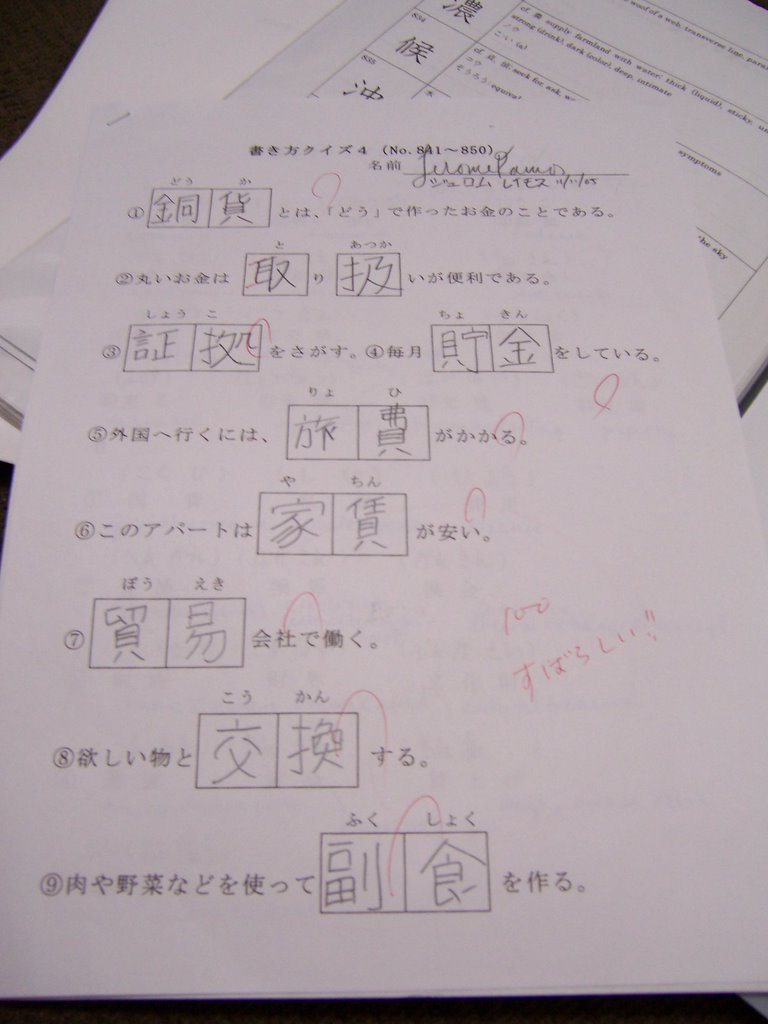 woof of a web, transverse line,
濃 cf. 農 supply farmland with water; thick (liquid), sticky,
strong (drink), dark (color), deep, intimate
ノウ
こ・い (a)
834
候
seek for, ask,
コウ
そうろう
835
油
symptoms
the sky
書き方クイズ4 (No. 841～850)
名前 Jerome Ramos
ジェロム レイモス 11/11/05
どう か
①銅貨とは、「どう」で作ったお金のことである。
と あつか
②丸いお金は取り扱いが便利である。
しょう こ ちょ きん
③証拠をさがす。④毎月貯金をしている。
りょ ひ
⑤外国へ行くには、旅費がかかる。
や ちん
⑥このアパートは家賃が安い。
ぼう えき
⑦貿易会社で働く。
100
すばらしい!!
こう かん
⑧欲しい物と交換する。
ふく しょく
⑨肉や野菜などを使って副食を作る。